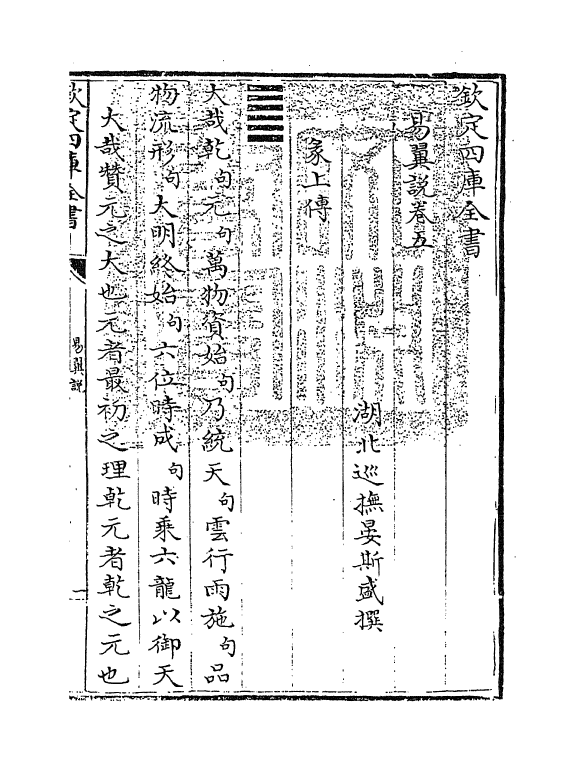 欽定四庫全書
易翼説卷五
湖北巡撫晏斯盛撰
彖上傳
䷀
大哉乾句元句萬物資始句乃統天句雲行雨施句品
物流形句大明終始句六位時成句時乗六龍以御天
大哉贊元之大也元者最初之理乾元者乾之元也
欽定四庫全書
易翼説
一